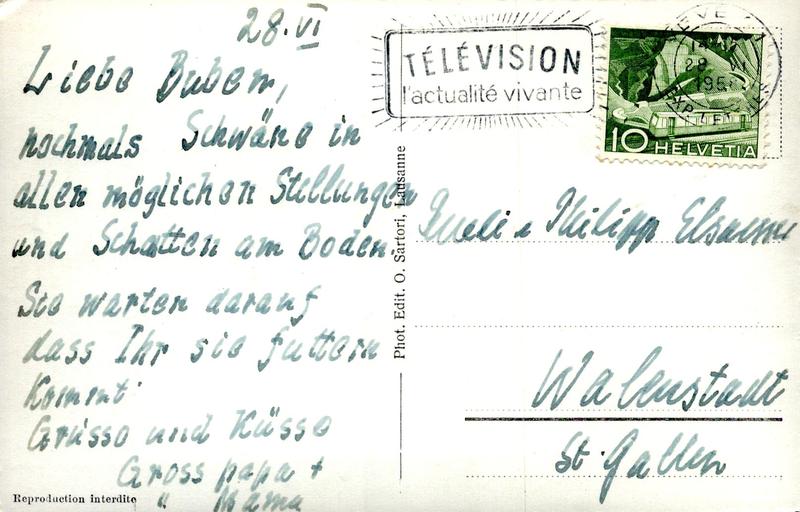 28.VI
Liebe Buben,
nochmals Schwäne in
allen möglichen Stellungen
und Schatten am Boden.
Sie warten darauf
dass Ihr sie futtern
kommt
Grüsse und Küsse
Grosspapa +
" Mama
Reproduction interdite
Phot. Edit. O. Sartori, Lausanne
TÉLÉVISION
l'actualité vivante
10 HELVETIA
Philipp
Walenstadt
St. Gallen